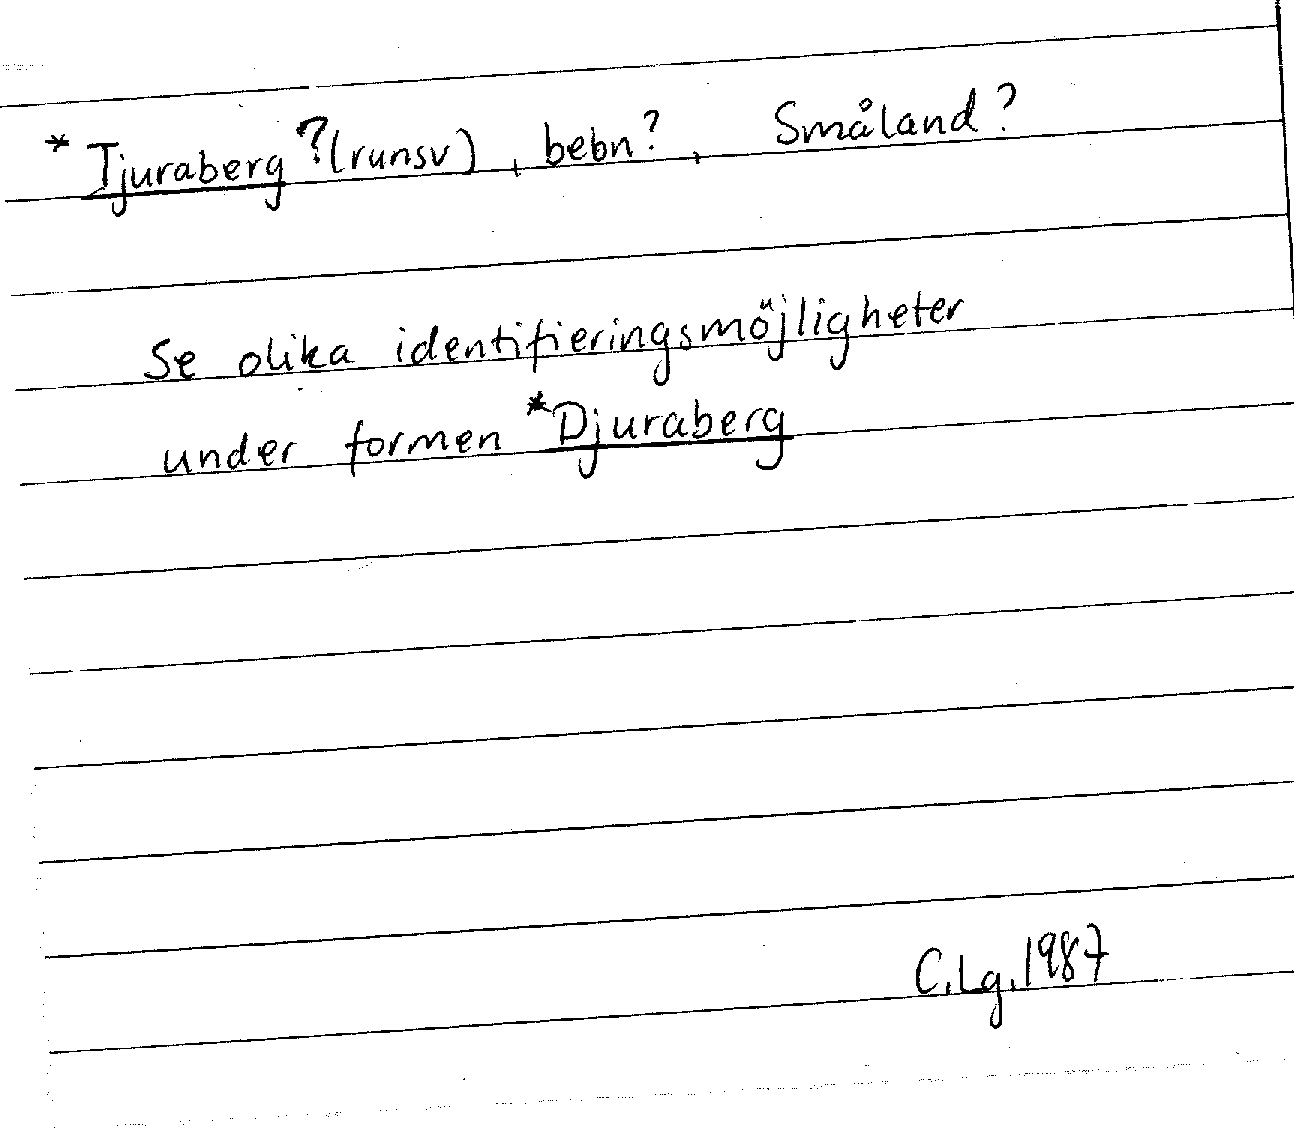 * Tjuraberg ? (runsv), bebn?, Småland?
Se olika identifieringsmöjligheter
under formen *Djuraberg
C.Lg. 1987